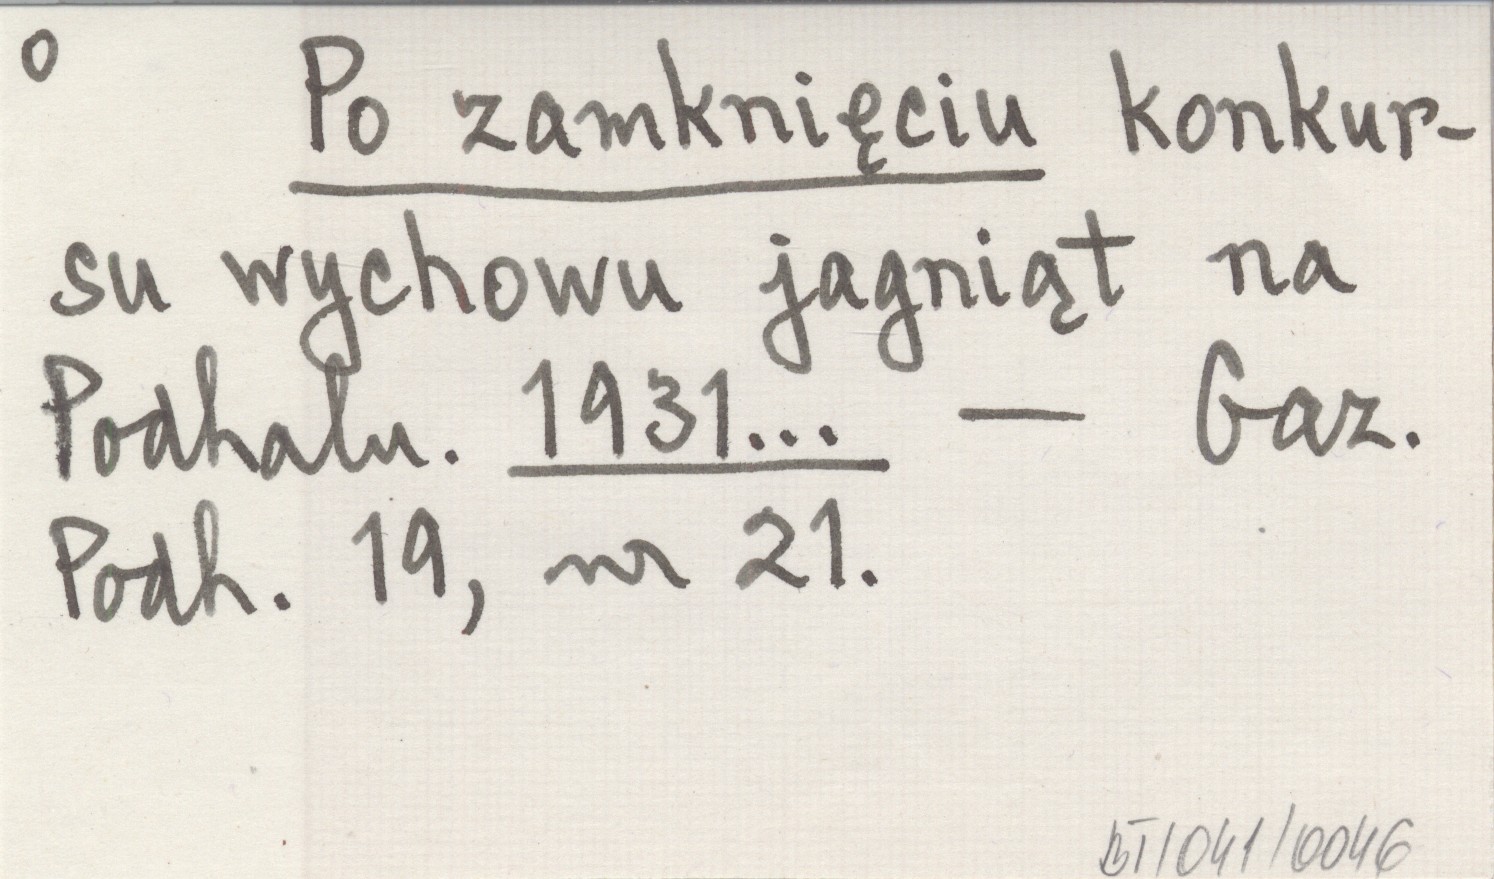 o Po zamknięciu konkur-
su wychowu jagniąt na
Podhalu. 1931... — Gaz.
Podh. 19, nr 21.
BT/041/0046